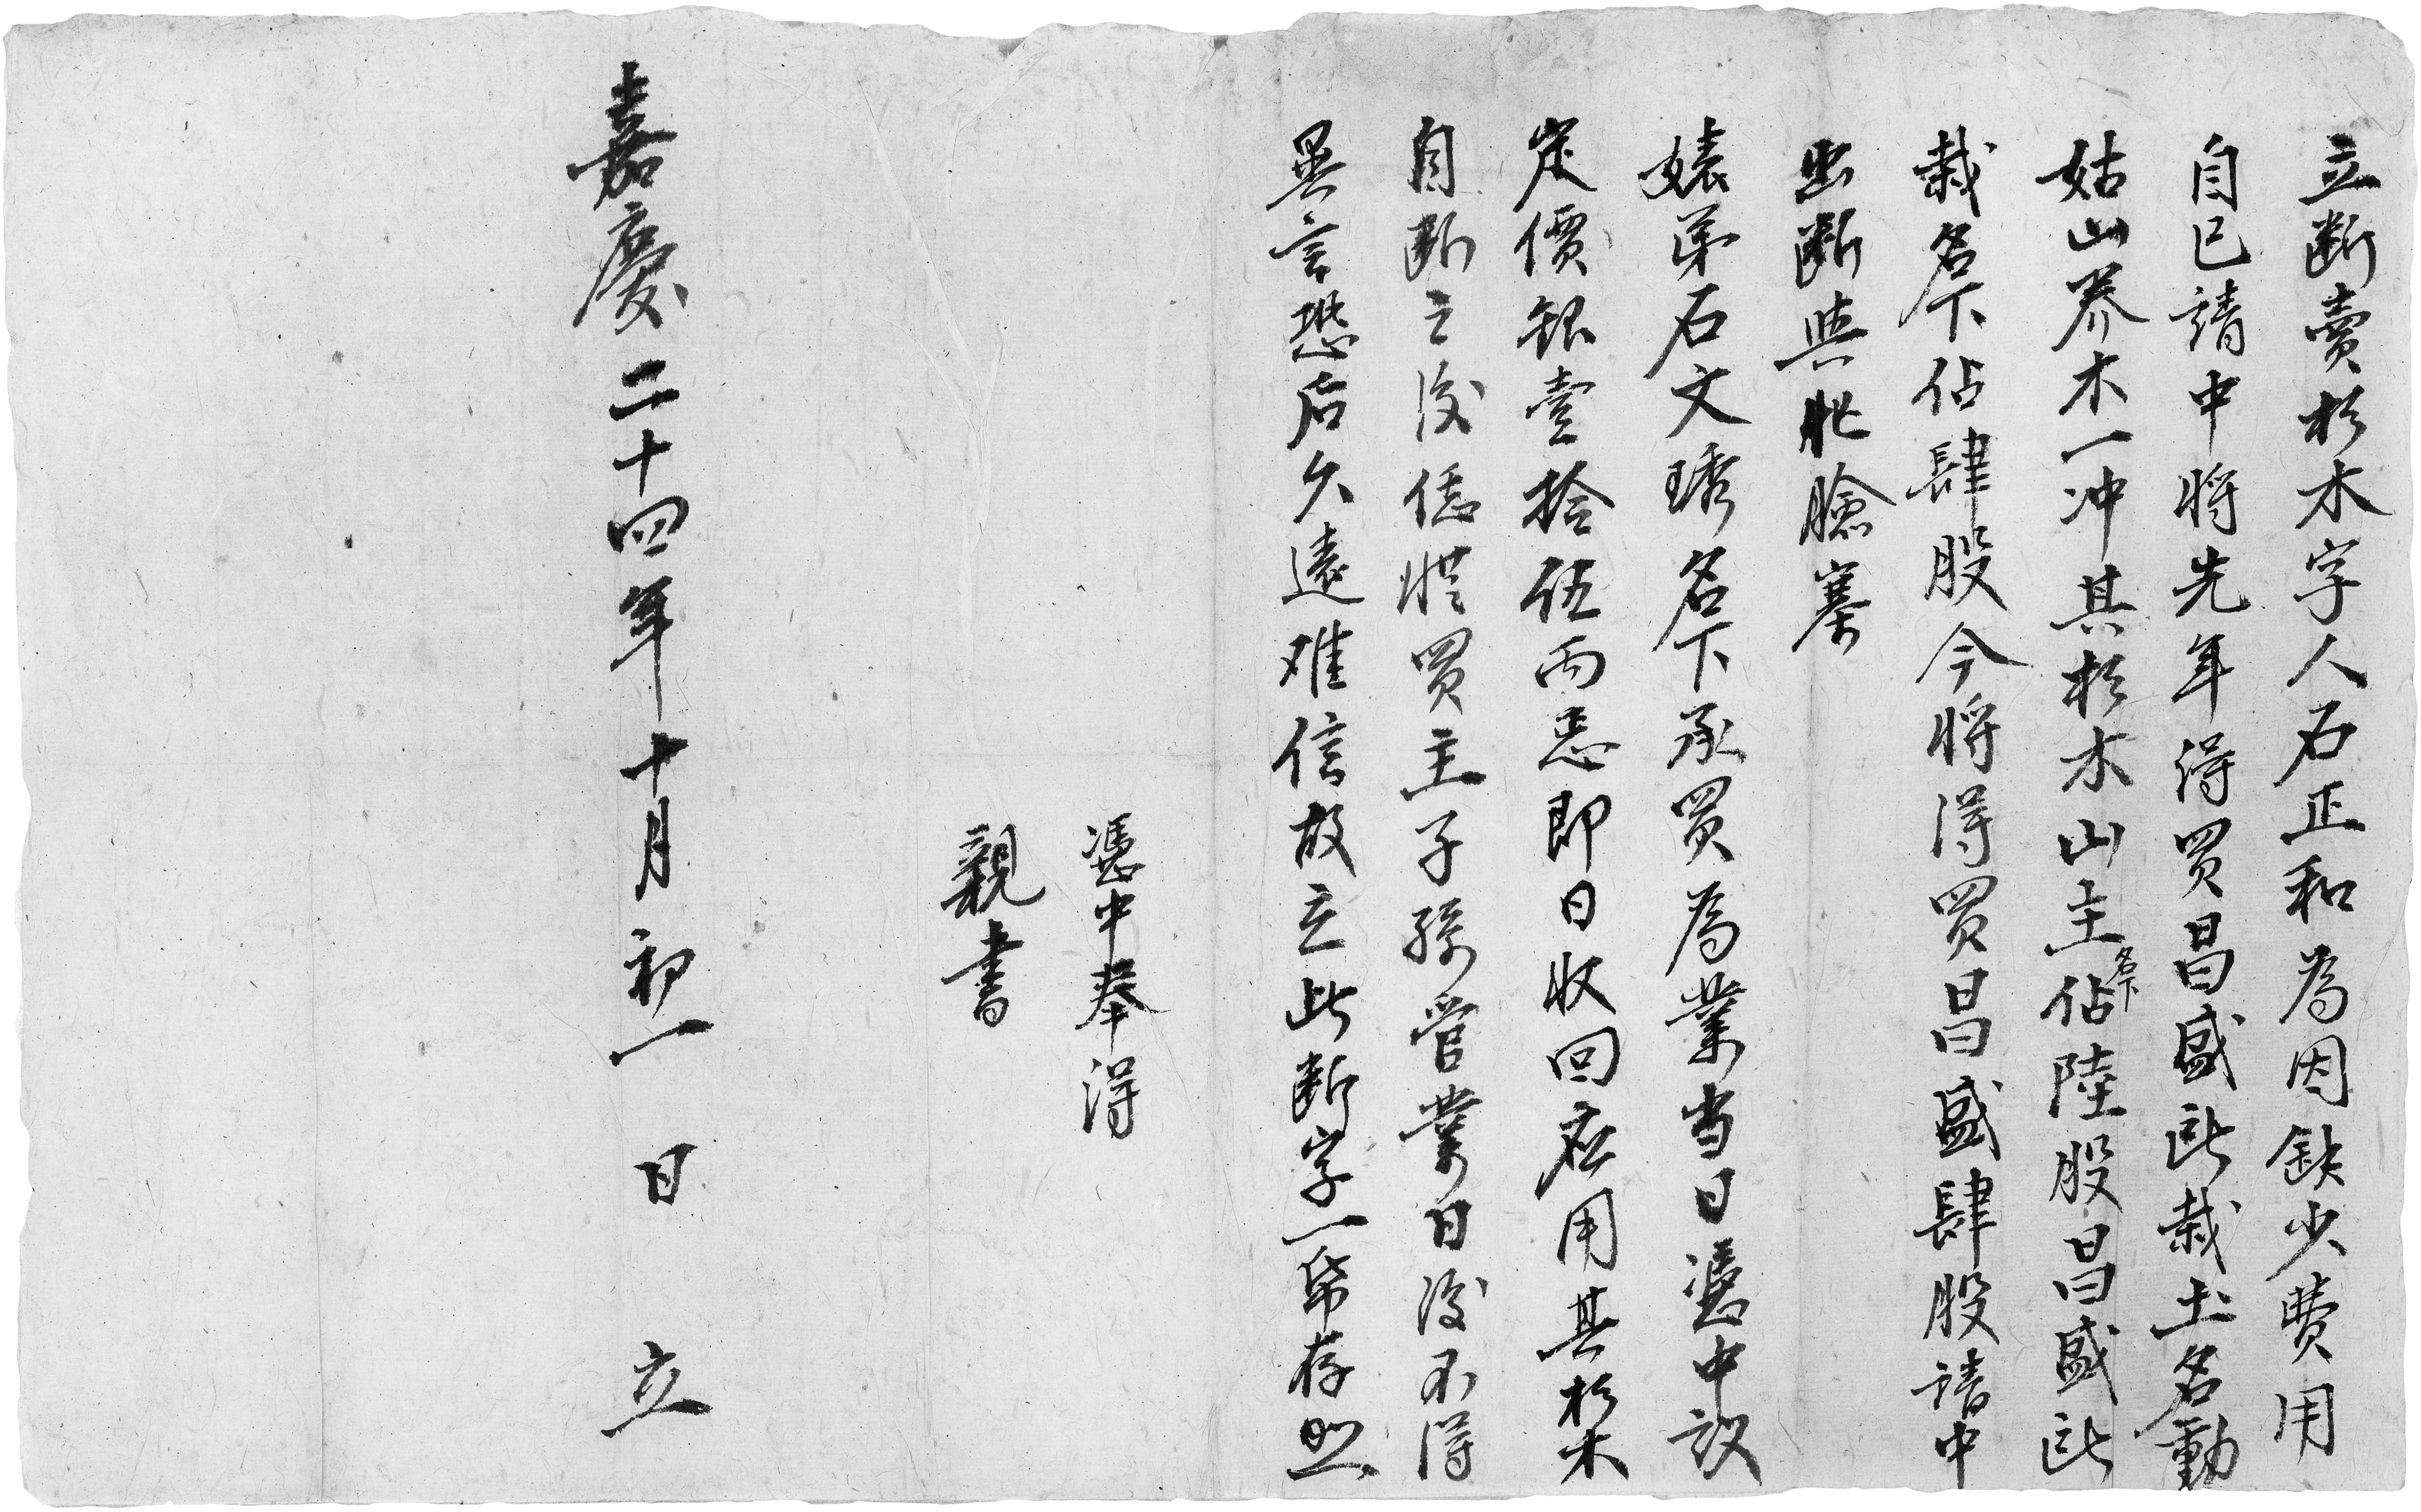 立断賣杉木字人石正和為因缺少费用
自己請中将先年得買昌盛所栽土名動
姑山养木一冲其杉木山主名下佔陸股昌盛所
栽名下佔肆股今将得買昌盛肆股請中
出断與毑臉寨
婊弟石文琇名下承買為業当日憑中议
定價银壹拾伍両悉即日收回应用其杉木
自断之後任凴買主子孫管業日後不得
異言恐后久遠难信故立此断字一帋存照
憑中奉得
親書
嘉慶二十四年十月初一日立